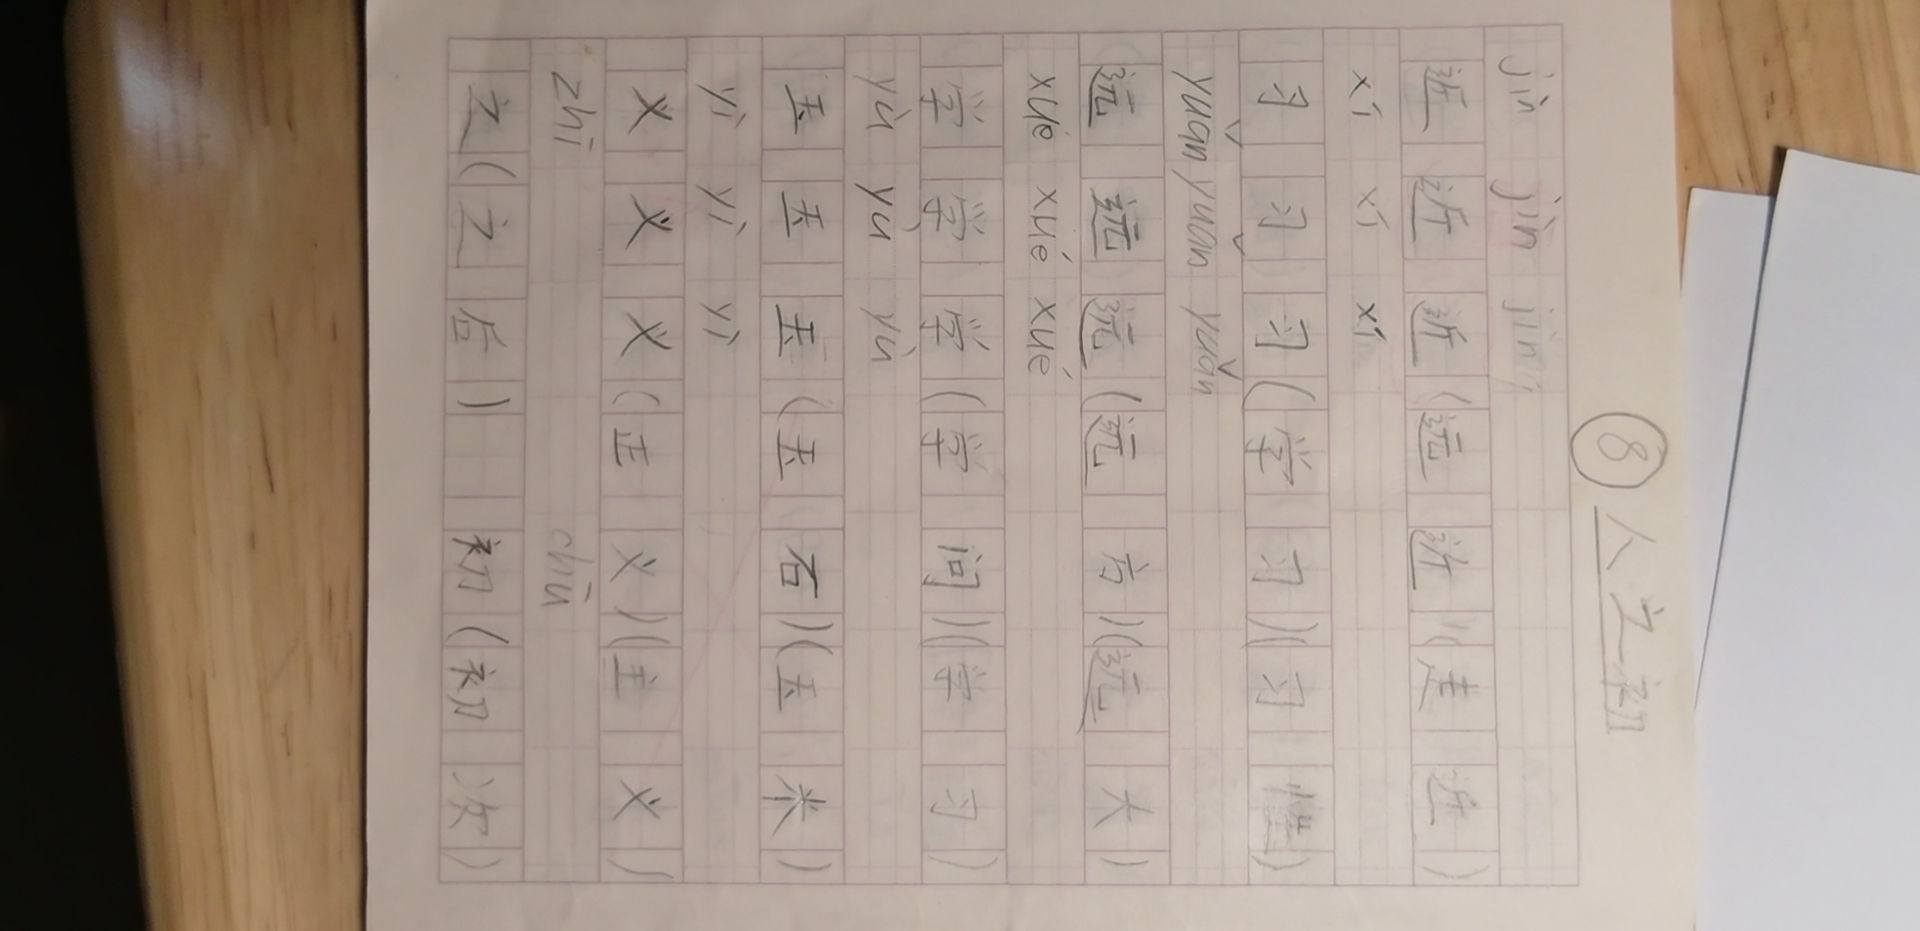 ⑧人之初
jìn jìn jìn
近近近(远近)(走近)
xí xí xí
习习习(学习)(习惯)
yuǎn yuǎn yuǎn
远远远(远方)(远大)
xué xué xué
学学学(学问)(学习)
yù yù yù
玉玉玉(玉石)(玉米)
yì yì yì
义义义(正义)(主义(
zhī chū
之(之后) 初(初次)